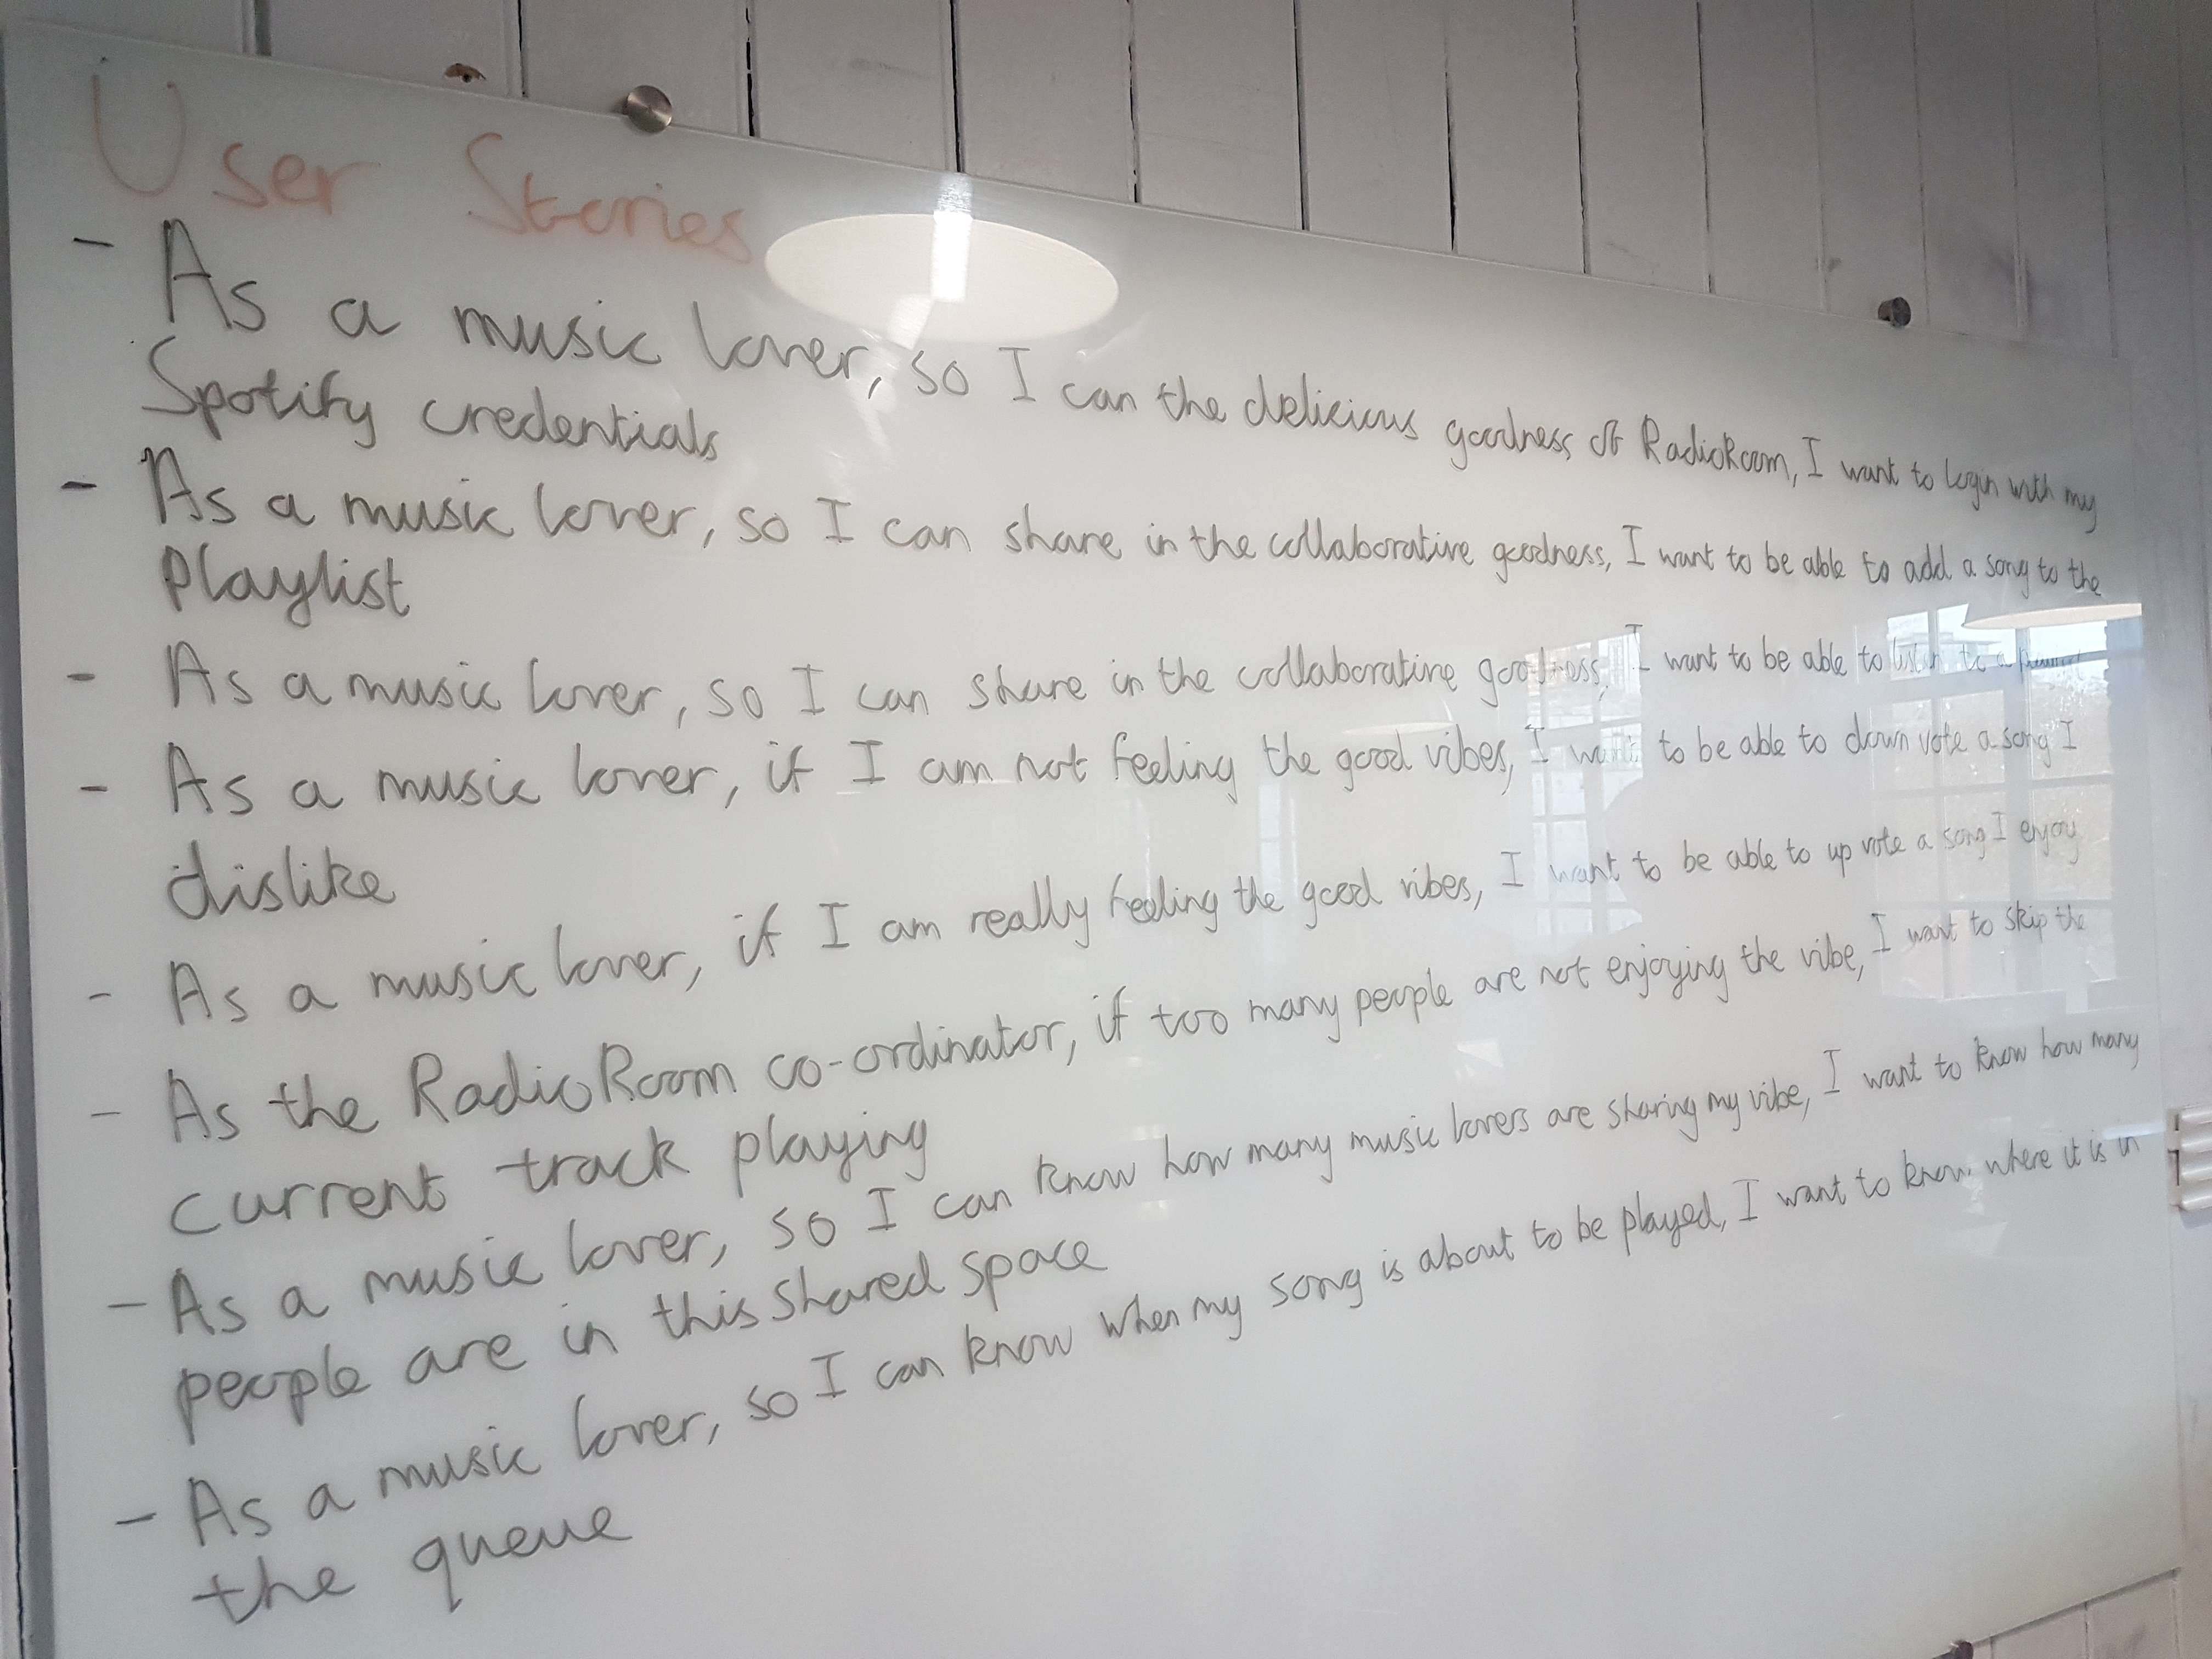 User Stories
- As a music lover, so I can the delicious goodness of RadioRoom, I want to login with my
Spotify credentials
- As a music lover, so I can share in the collaborative goodness, I want to be able to add a song to the
playlist
- As a music lover, so I can share in the collaborative goodness, I want to be able to listen to a
- As a music lover, if I am not feeling the good vibes, I want to be able to down vote a song I
dislike
- As a music lover, if I am really feeling the good vibes, I want to be able to up vote a song I enjoy
- As the RadioRoom co-ordinator, if too many people are not enjoying the vibe, I want to skip the
current track playing
- As a music lover, so I can know how many music lovers are sharing my vibe, I want to know how many
people are in this shared space
- As a music lover, so I can know when my song is about to be played, I want to know where it is in
the queue